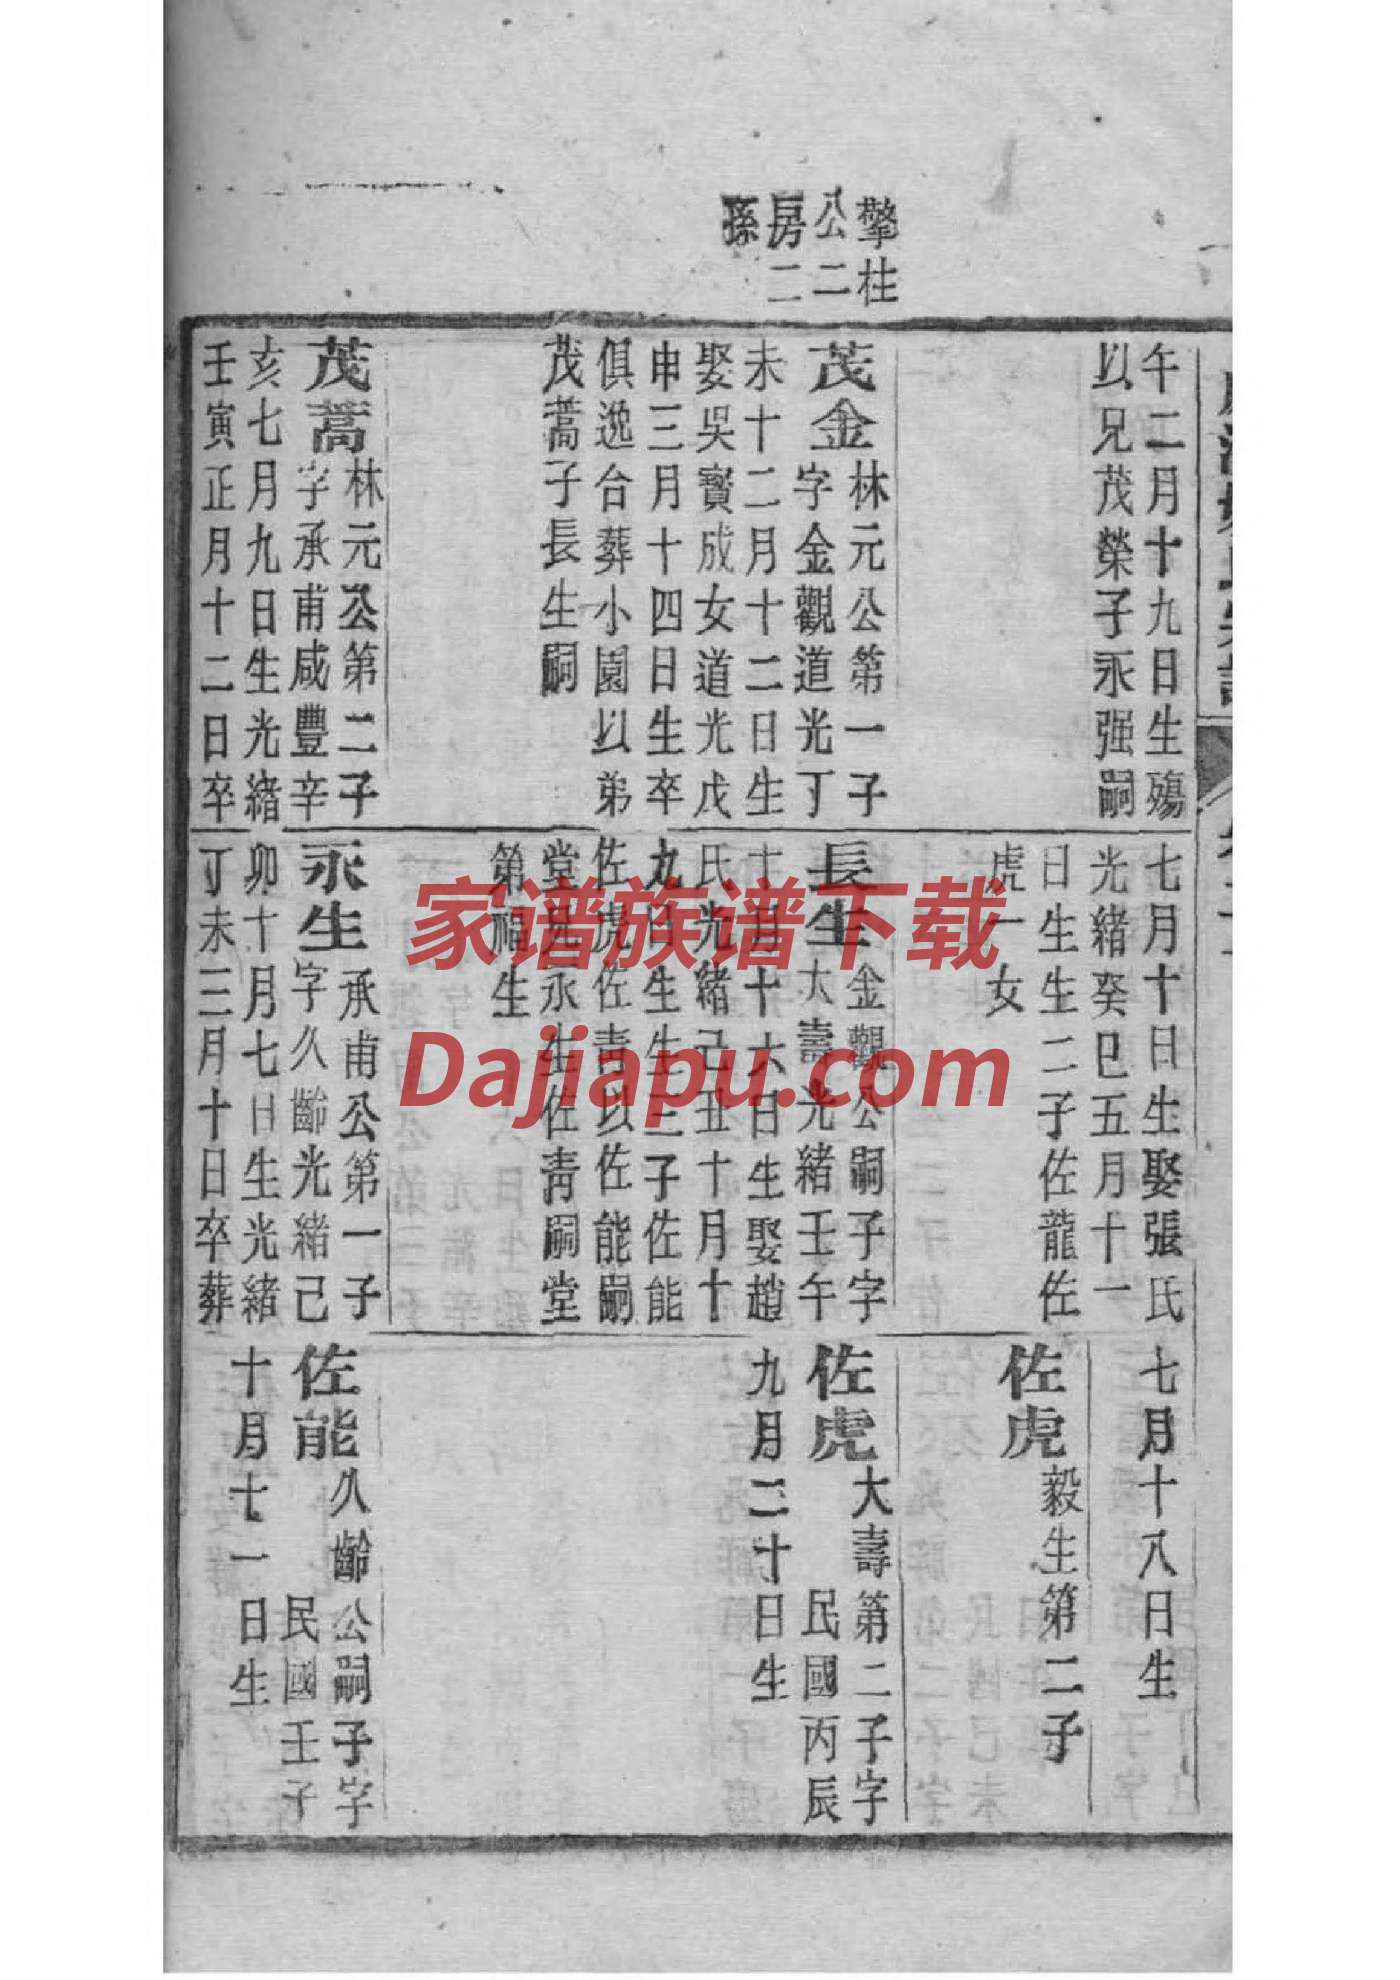 擎柱
公二
房二
孫
午二月十九日生殤
以兄茂榮子永强嗣
茂金
林元公第一子
字金觀道光丁
未十二月十二日生
娶吳寶成女道光戊
申三月十四日生卒
俱逸合葬小園以弟
茂蒿子長生嗣
茂蒿
林元公第二子
字承甫咸豐辛
亥七月九日生光緒
壬寅正月十二日卒
七月十日生娶張氏
光緒癸巳五月十一
日生生二子佐龍佐
虎一女
長生
金觀公嗣子字
大壽光緒壬午
十月十六日生娶趙
氏光緒己丑十月十
九日生生三子佐能
佐虎佐青以佐能嗣
堂兄永生佐青嗣堂
第福生
永生
承甫公第一子
字久齡光緒己
卯十月七日生光緒
丁未三月十日卒葬
七月十八日生
佐虎
毅生第二子
佐虎
大壽第二子字
民國丙辰
九月二十日生
佐能
久齡公嗣子字
民國壬子
十月十一日生
家谱族谱下载
Dajiapu.com